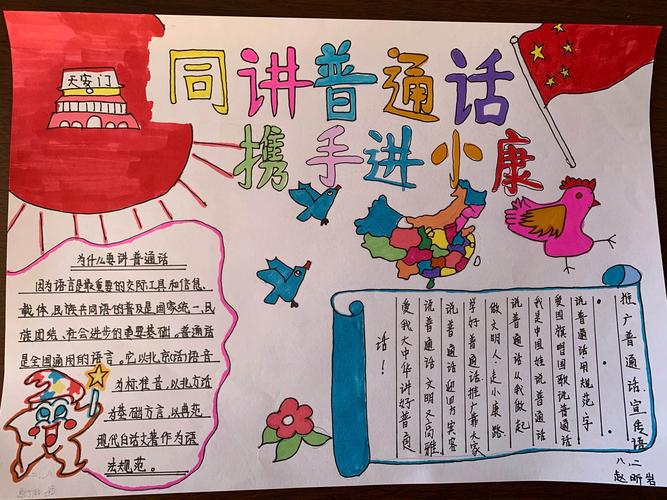 天安门
同讲普通话
携手进小康
为什么要讲普通话
因为语言是最重要的交际工具和信息
载体,民族共同语的普及是国家统一、民
族团结、社会进步的重要基础。普通话
是全国通用的语言。它以北京语音
为标准音,以北方话
为基础方言,以典范
现代白话文著作为语
法规范。
推广普通话宣传语
说普通话,用规范字
爱国旗唱国歌说普通话
我是中国娃说普通话
说普通话从我做起
做文明人,走小康路
学好普通话推广靠大家
说普通话迎四方宾客
说普通话文明又高雅
爱我大中华讲好普通
话!
八.二
赵昕岩